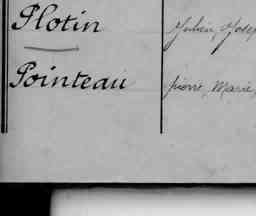 Plotin Julien, Josep
Pointeau pierre, Marie,